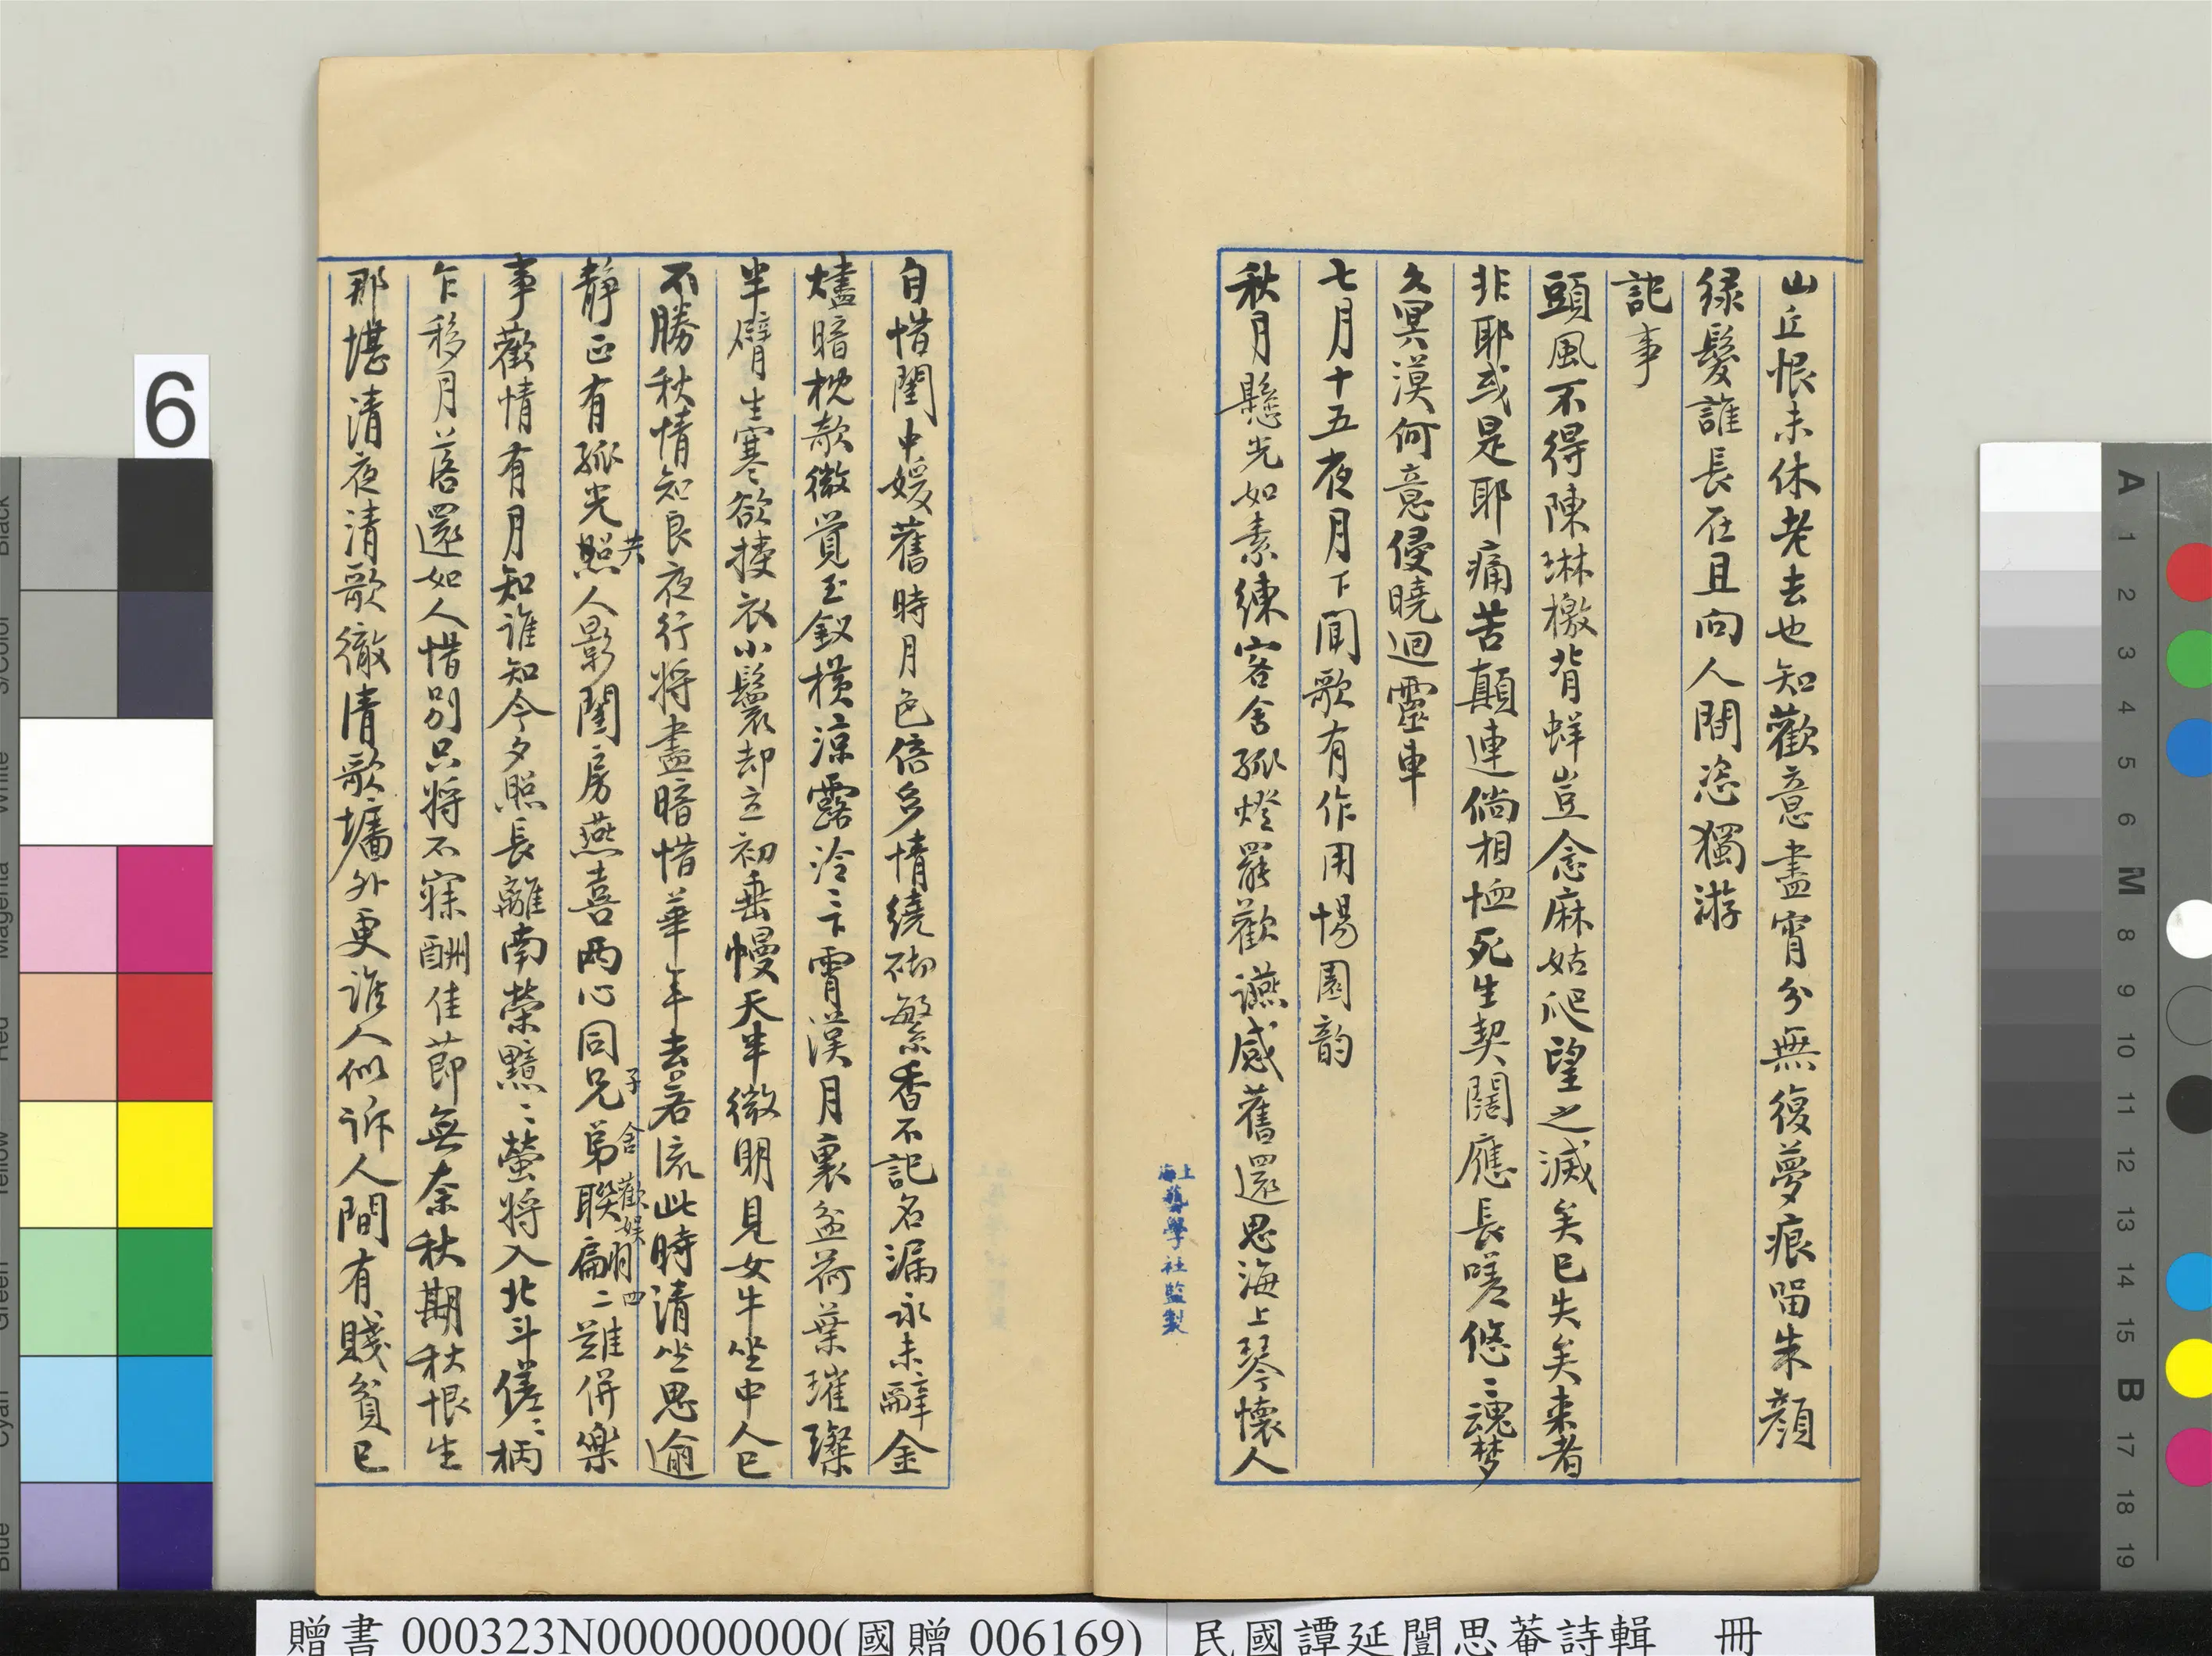 山丘恨未休老去也知歡意盡宵分無復夢痕留朱顏
綠鬢誰長在且向人間恣獨游
記事
頭風不得陳琳檄背蛘豈念麻姑爬望之滅矣已失矣來者
非耶或是耶痛苦顛連倘相恤死生契闊應長嗟悠〻魂梦
久冥漠何意侵曉迴靈車
七月十五夜月下聞歌有作用惕園韵
秋月懸光如素練客舍孤燈罷歡讌感舊還思海上琴懷人
上海藝學社監製
自惜閨中媛舊時月色倍多情繞砌繁香不記名漏永未辭金
燼暗枕欹微覺玉釵橫涼露泠〻下霄漢月裏盆荷葉璀璨
半臂生寒欲摟衣小鬟却立初垂幔天半微明見女牛坐中人已
不勝秋情知良夜行將盡暗惜華年去若流此時清坐思逾
靜正有孤光照人影閨房燕喜兩心同兄弟聯翩二難併樂
共
子舍歡娛
四
事歡情有月知誰知今夕照長離南榮黯〻螢將入北斗傞〻柄
乍移月落還如人惜別只將不寐酬佳節無奈秋期秋恨生
那堪清夜清歌徹清歌墻外更誰人似訴人間有賤貧已
6
贈書 000323N000000000(國贈 006169) 民國譚延闓思菴詩輯 冊
A 1 2 3 4 5 6 M 8 9 10 11 12 13 14 15 B 17 18 19
Black
3/Color
White
Magenta
Red
Yellow
Green
Cyan
Blue